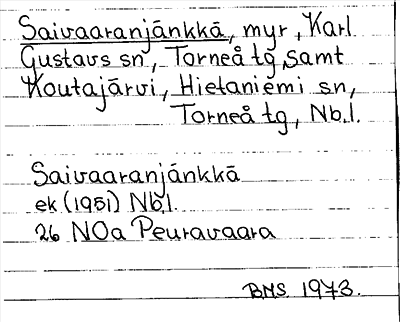 Saivaaranjänkkä, myr, Karl
Gustavs sn, Torneå tg, samt
Koutajärvi, Hietaniemi sn,
Torneå tg, Nb.l.
Saivaaranjänkkä
ek (1951) Nb.l.
26 NOa Peuravaara
BMS. 1973.